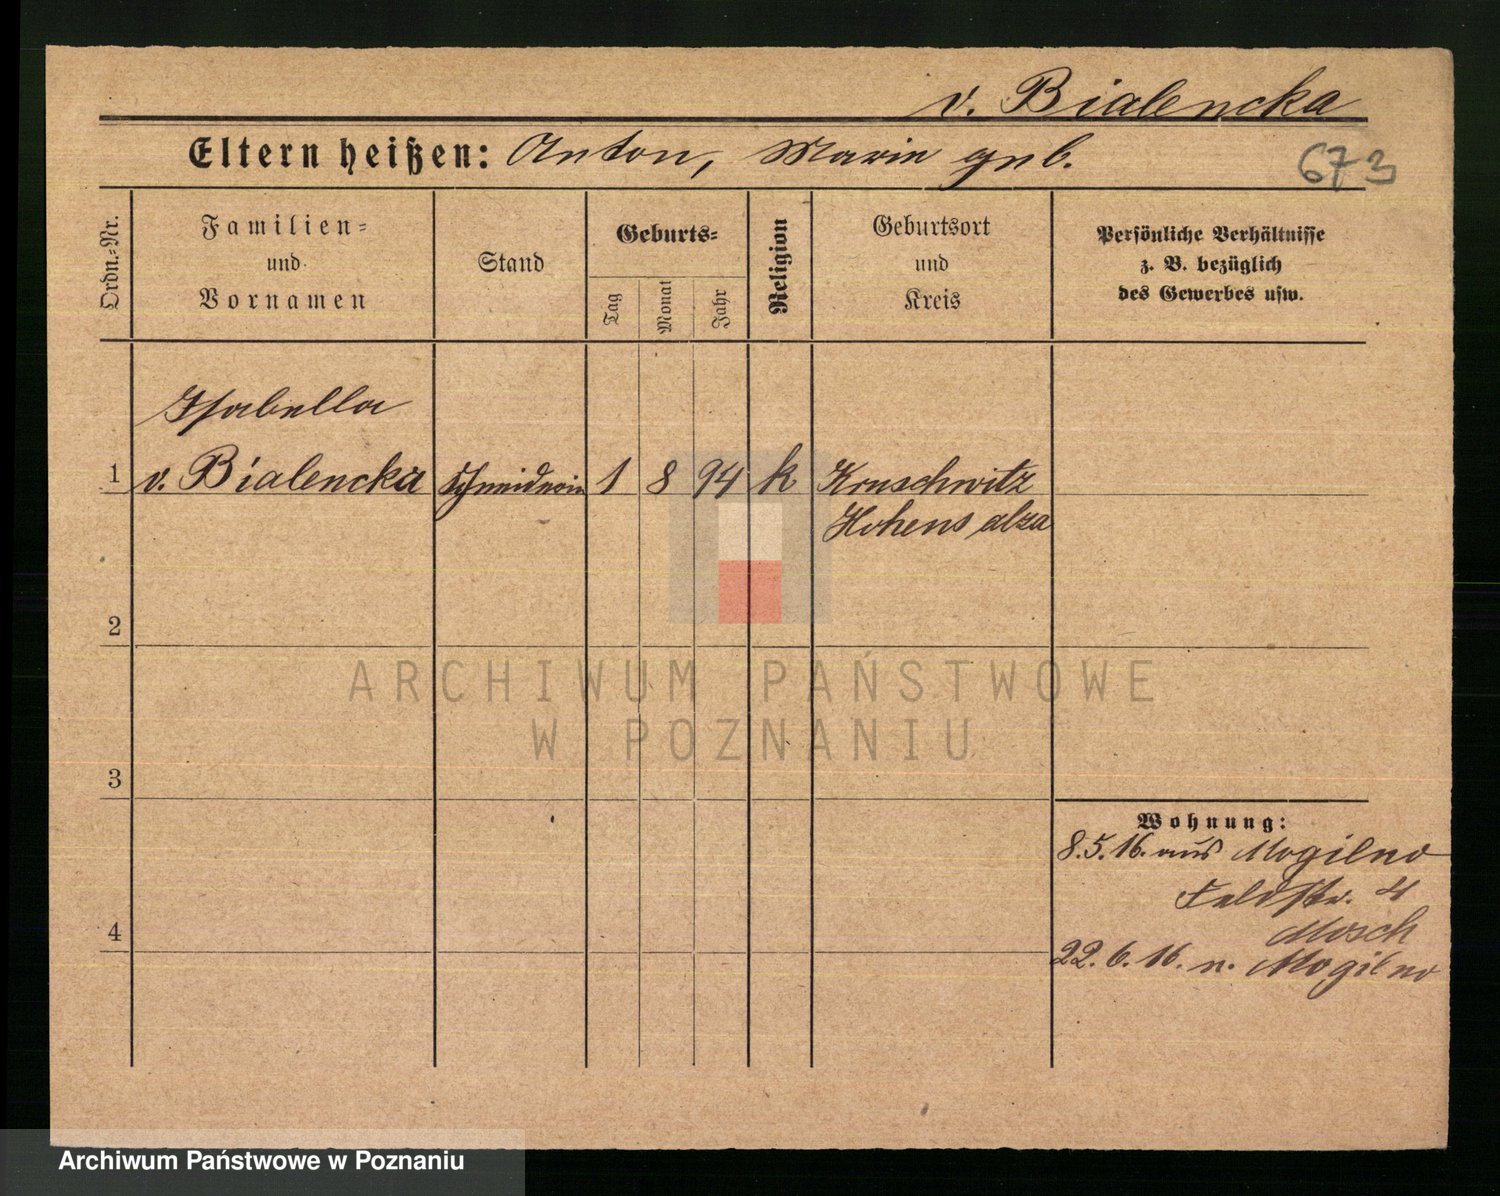 v. Bialencka
Eltern heißen: Anton, Marie geb.
673
Ordn.-Nr.
Familien-
und
Vornamen
Stand
Geburts-
Tag
Monat
Jahr
Religion
Geburtsort
und
Kreis
Persönliche Verhältnisse
z. B. bezüglich
des Gewerbes usw.
Isabella
1 v. Bialencka Schneiderin 1 8 94 k Kruschwitz
Hohensalza
2
ARCHIWUM PAŃSTWOWE
W POZNANIU
3
Wohnung:
8.5.16. aus Mogilno
Feldstr. 4
Mosch
4
22.6.16. n. Mogilno
Archiwum Państwowe w Poznaniu